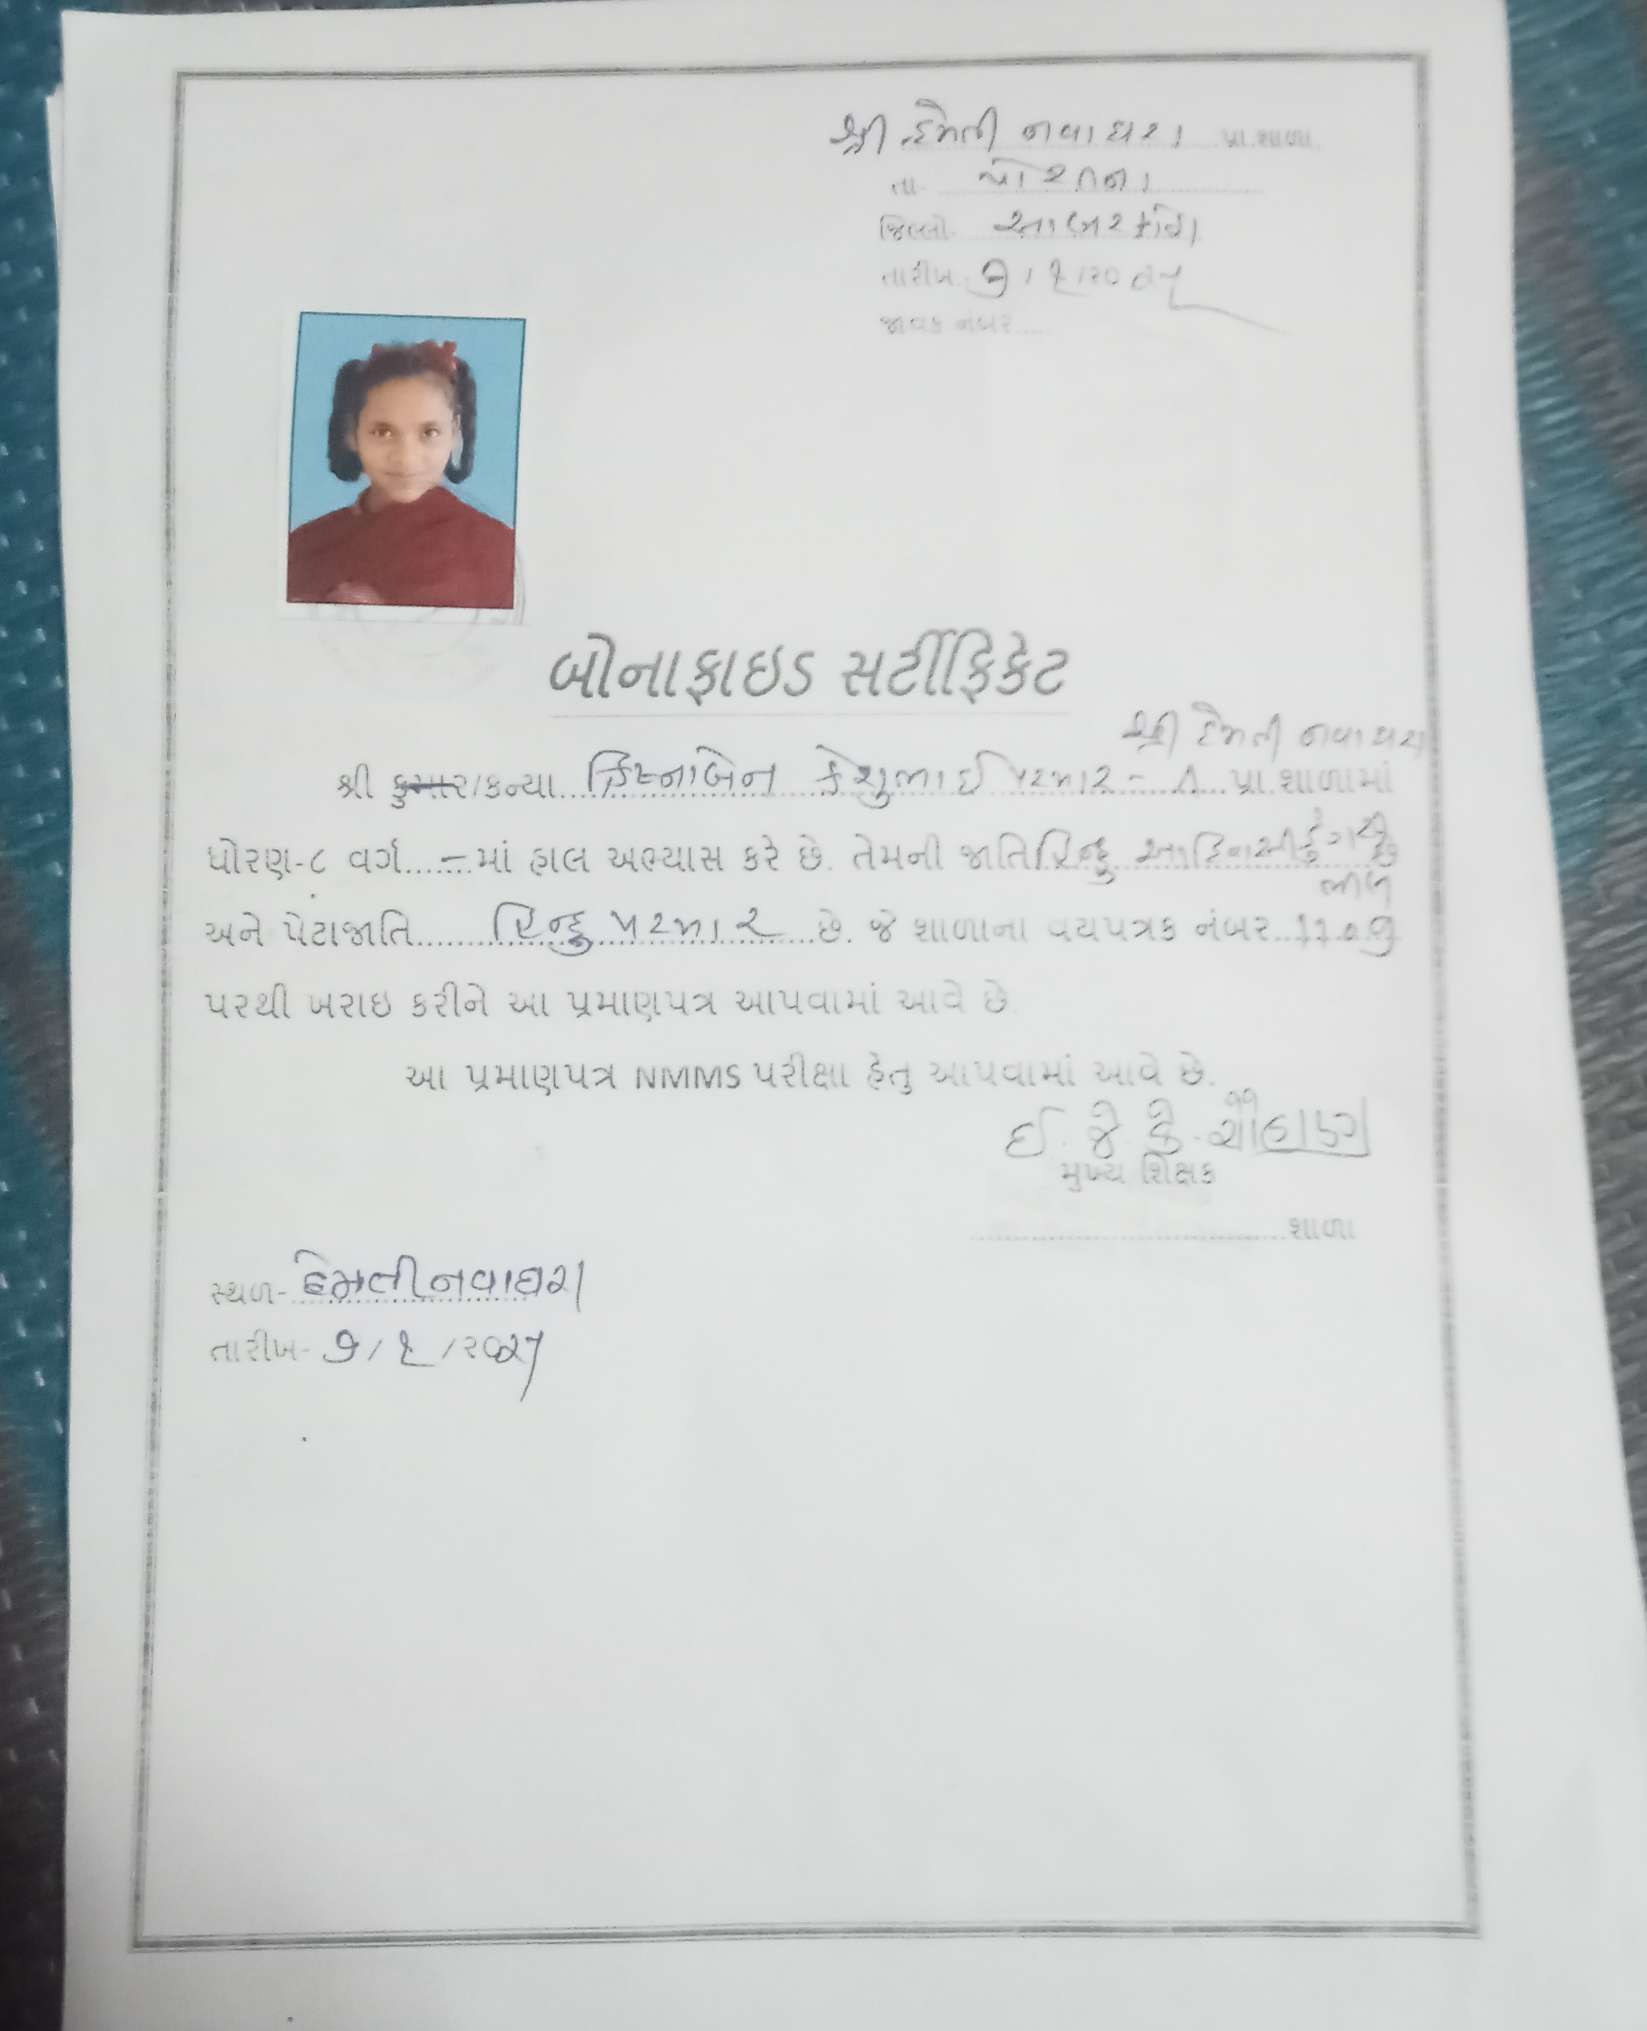 શ્રી હેમતી નવાઘરા પ્રા.શાળા
તા- પોશીના
જિલ્લો- સાબરકાંઠા
તારીખ- ૭/૧/૨૦૨૫
જાવક નંબર....
બોનાફાઇડ સર્ટીફિકેટ
શ્રી હેમતી નવાઘરા
શ્રી કુમાર/કન્યા ક્રિષ્નાબેન કેશુભાઈ પરમાર - પ્રા.શાળામાં
ધોરણ-૮ વર્ગ......-...માં હાલ અભ્યાસ કરે છે. તેમની જાતિ હિન્દુ આદિવાસી ડુંગરી છે
ભીલ
અને પેટાજાતિ હિન્દુ પરમાર છે. જે શાળાના વયપત્રક નંબર ૧૧૦૭
પરથી ખરાઇ કરીને આ પ્રમાણપત્ર આપવામાં આવે છે.
આ પ્રમાણપત્ર NMMS પરીક્ષા હેતુ આપવામાં આવે છે.
ઈ. જે. કે. ચૌહાણ
મુખ્ય શિક્ષક
શાળા
સ્થળ- હેમતી નવાઘરા
તારીખ- ૭/૧/૨૦૨૫